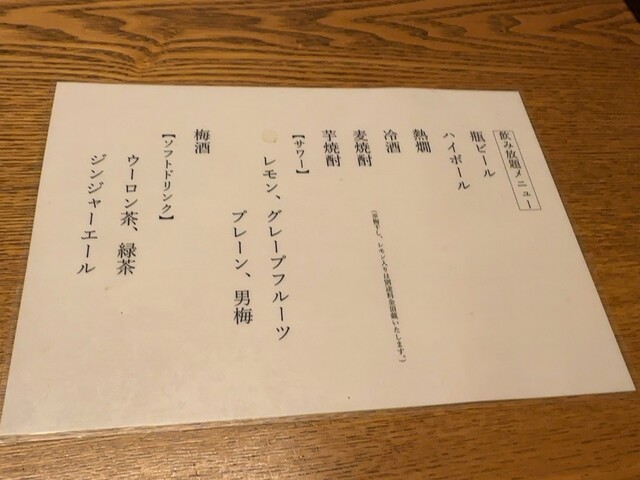 飲み放題メニュー
瓶ビール
ハイボール
熱燗
冷酒
麦焼酎
芋焼酎
(※梅干し、レモン入りは別途料金頂戴いたします。)
【サワー】
レモン、グレープフルーツ
プレーン、男梅
梅酒
【ソフトドリンク】
ウーロン茶、緑茶
ジンジャーエール